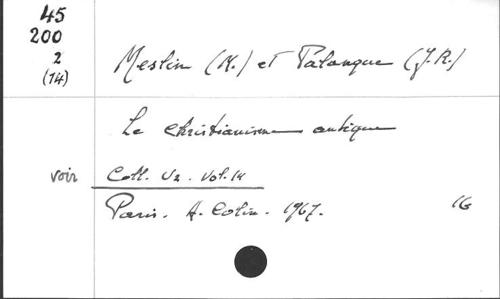 45
200
2
(14)
Meslin (M.) et Palanque (J.R.)
Le christianisme antique
voir Coll. U2. Vol. 14
Paris. A. Colin. 1967. 16